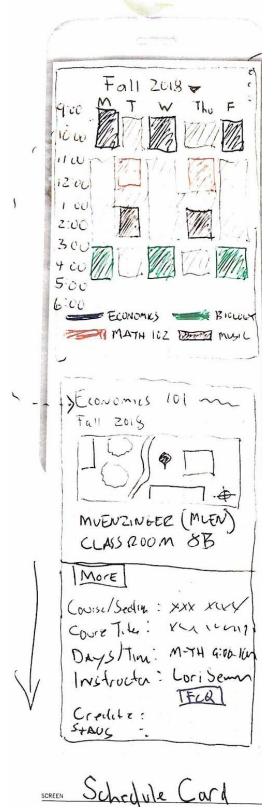 Fall 2018
M T W Thu F
9:00
10:00
11:00
12:00
1:00
2:00
3:00
4:00
5:00
6:00
ECONOMICS BIOLOGY
MATH 102 MUSIC
Economics 101
Fall 2018
MUENZINGER (MUEN)
CLASSROOM 8B
More
Course/Section: XXX
Course Title:
Days/Time: M-TH 9:00-
Instructor: Lori
FCQ
Credits:
Status
SCREEN Schedule Card